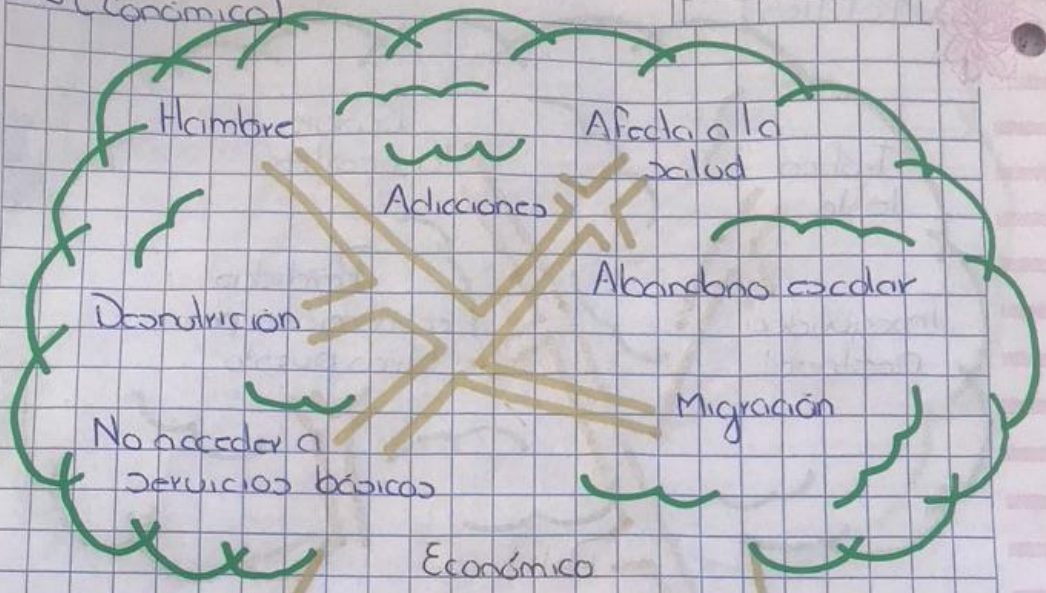 Económico)
Hambre
Afecta a la
salud
Adicciones
Abandono escolar
Desnutrición
Migración
No acceder a
servicios básicos
Económico